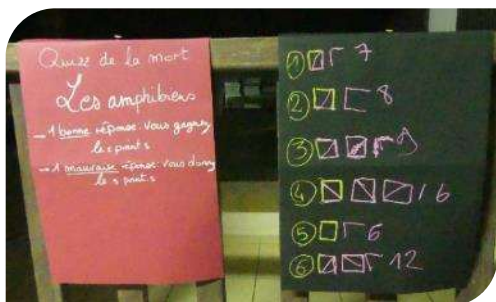 Quizz de la mort
Les amphibiens
- 1 bonne réponse: vous gagnez
les points
- 1 mauvaise réponse: vous donnez
les points
1 7
2 8
3 9
4 16
5 6
6 12